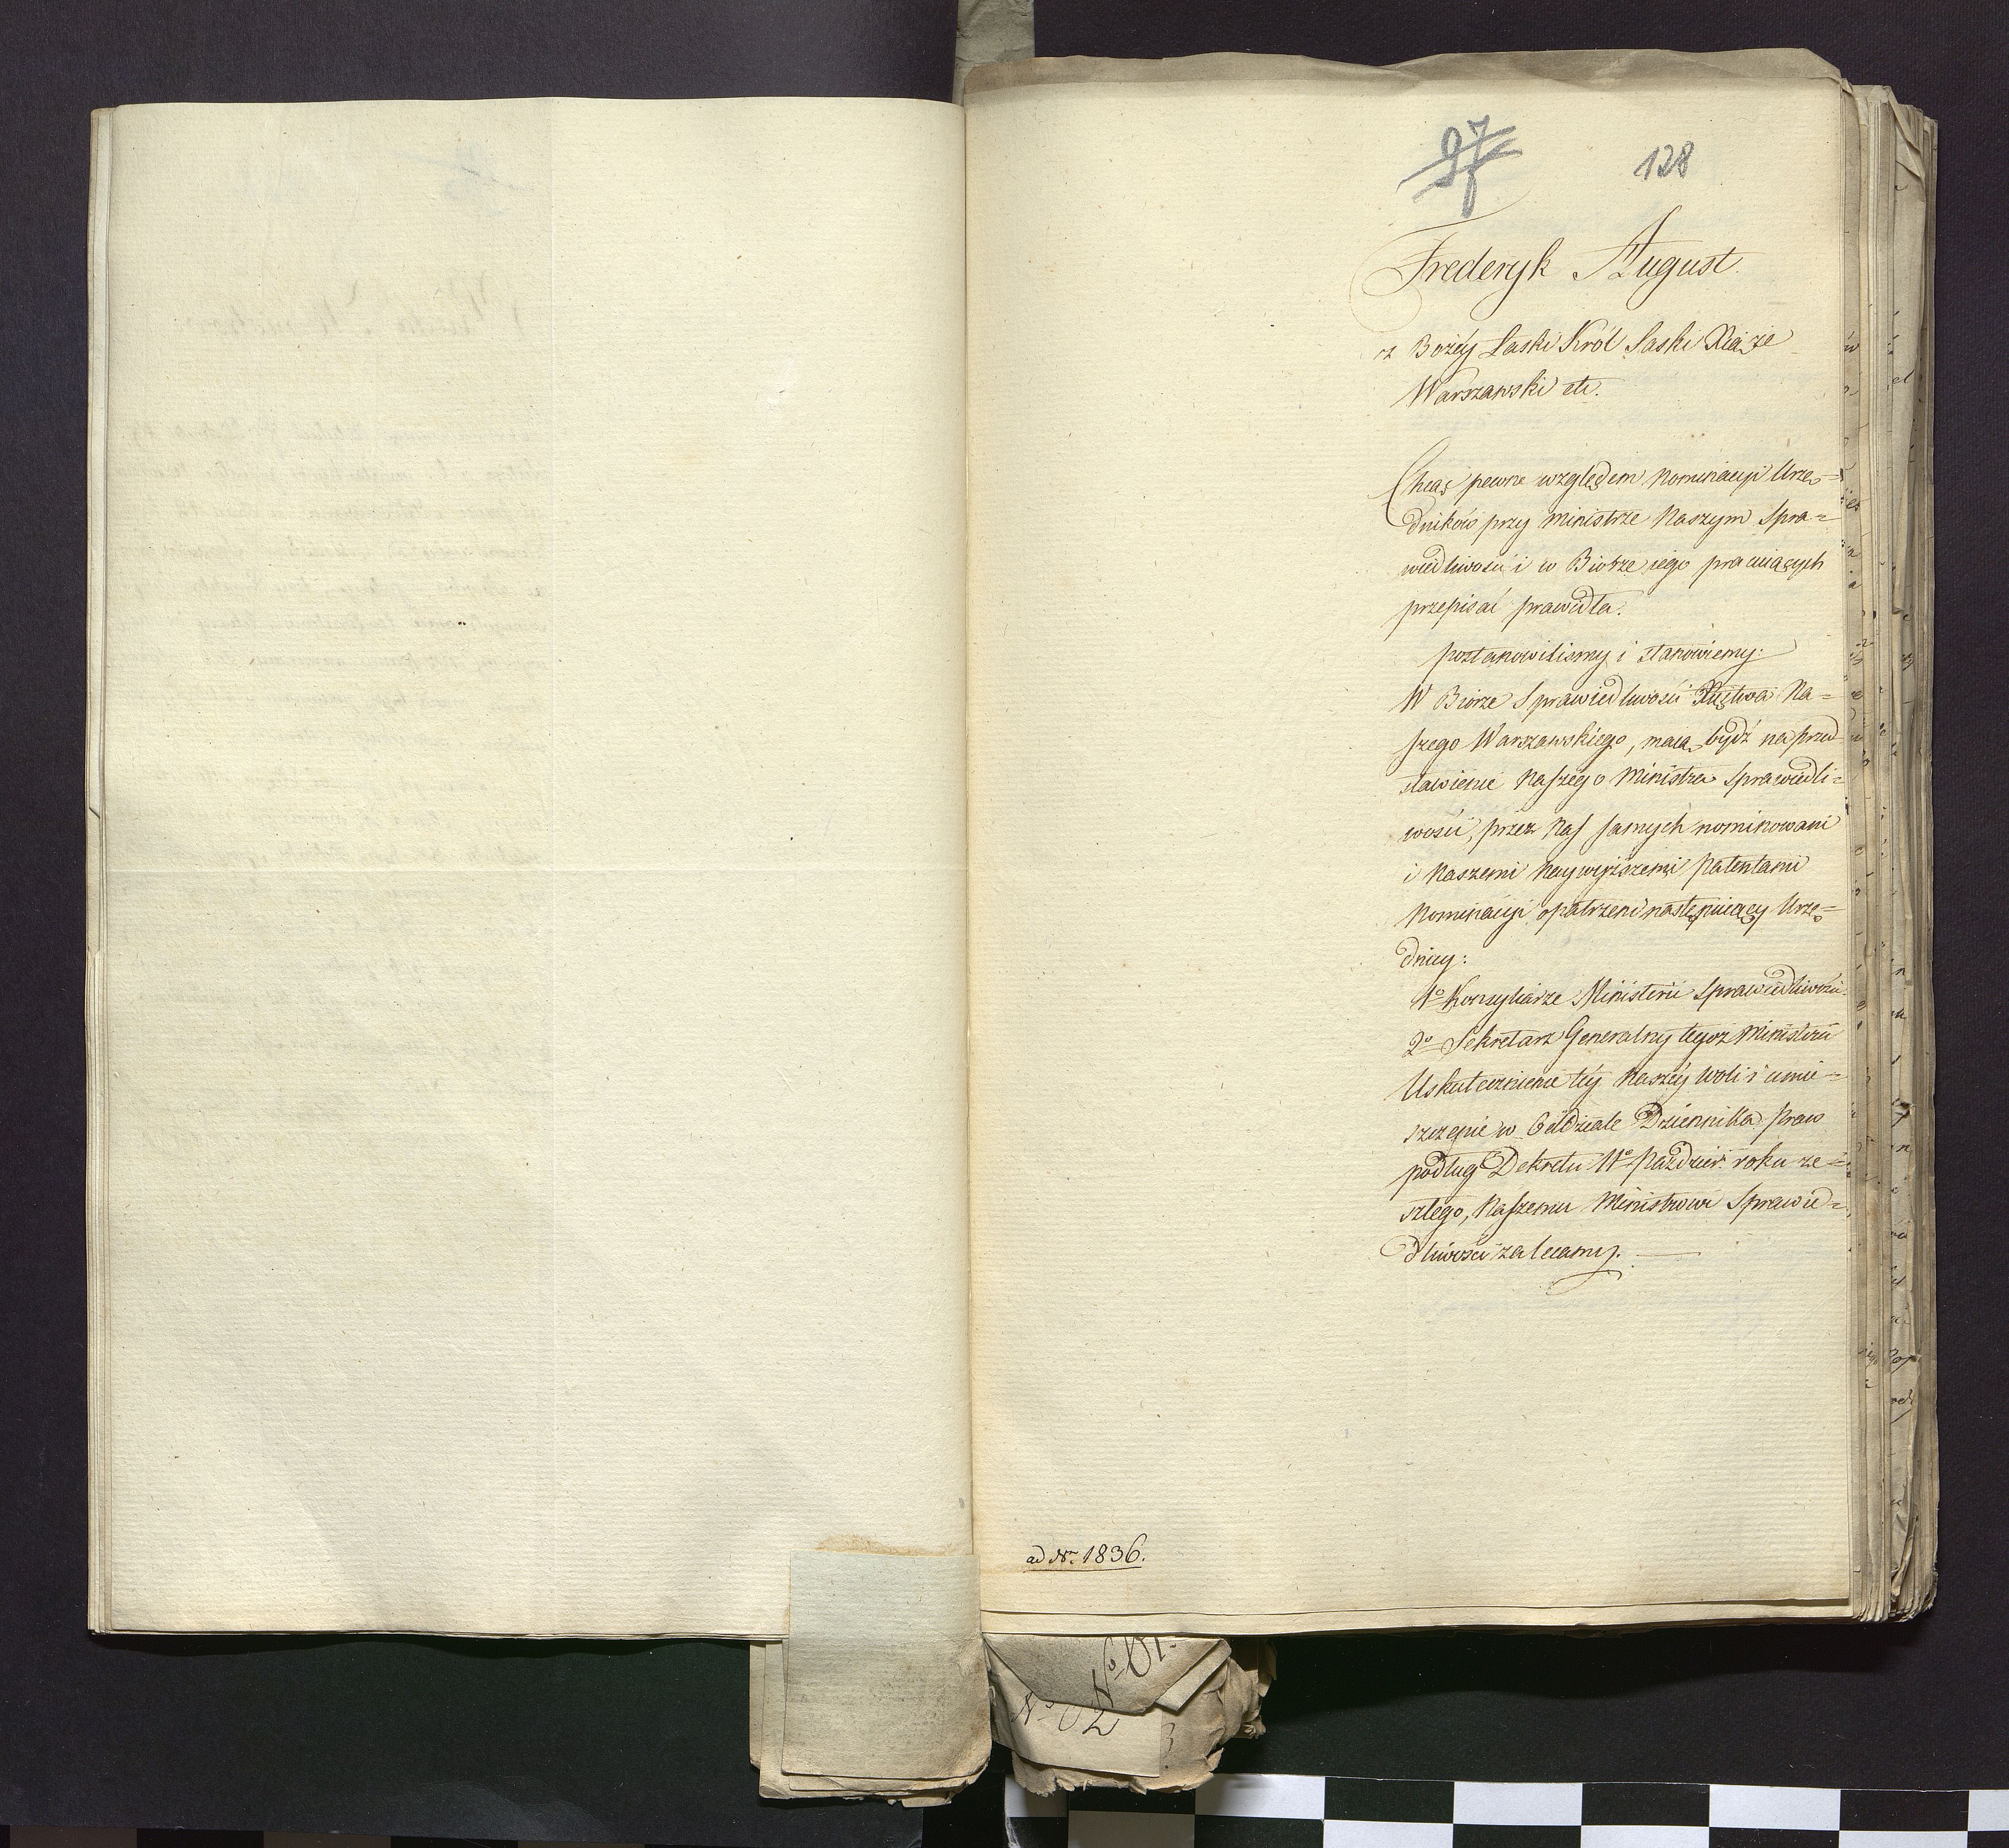 97
128
Frederyk August
z Bożéy Łaski Król Saski Xiąże
Warszawski etc.
Chcąc pewne względem Nominacyi Urzę=
dników przy Ministrze Naszym Spra=
wiedliwości i w Biórze iego pracuiących
przepisać prawidła.
postanowiliśmy i stanowiemy:
W Biórze Sprawiedliwości Xięstwa Na=
szego Warszawskiego, maią bydź na przed
stawienie Naszego Ministra Sprawiedli=
wości, przez Nas samych nominowani
i Naszemi Naywyższemi Patentami
Nominacyi opatrzeni następuiący Urzę=
dnicy:
1o Konsyliarze Ministerii Sprawiedliwości
2o Sekretarz Generalny tegoż Ministerii
Uskutecznienie téy Naszéy Woli i umie=
szczenie w Oddziale Dziennika Praw
podług Dekretu Paździer. roku ze=
szłego, Naszemu Ministrowi Sprawie=
dliwości zalecamy.
ad Nr. 1836.